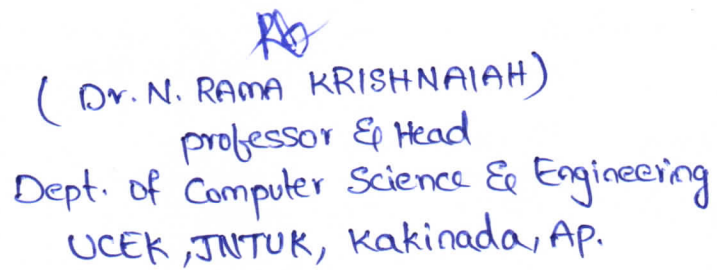 ( Dr. N. RAMA KRISHNAIAH)
professor & Head
Dept. of Computer Science & Engineering
UCEK, JNTUK, Kakinada, AP.